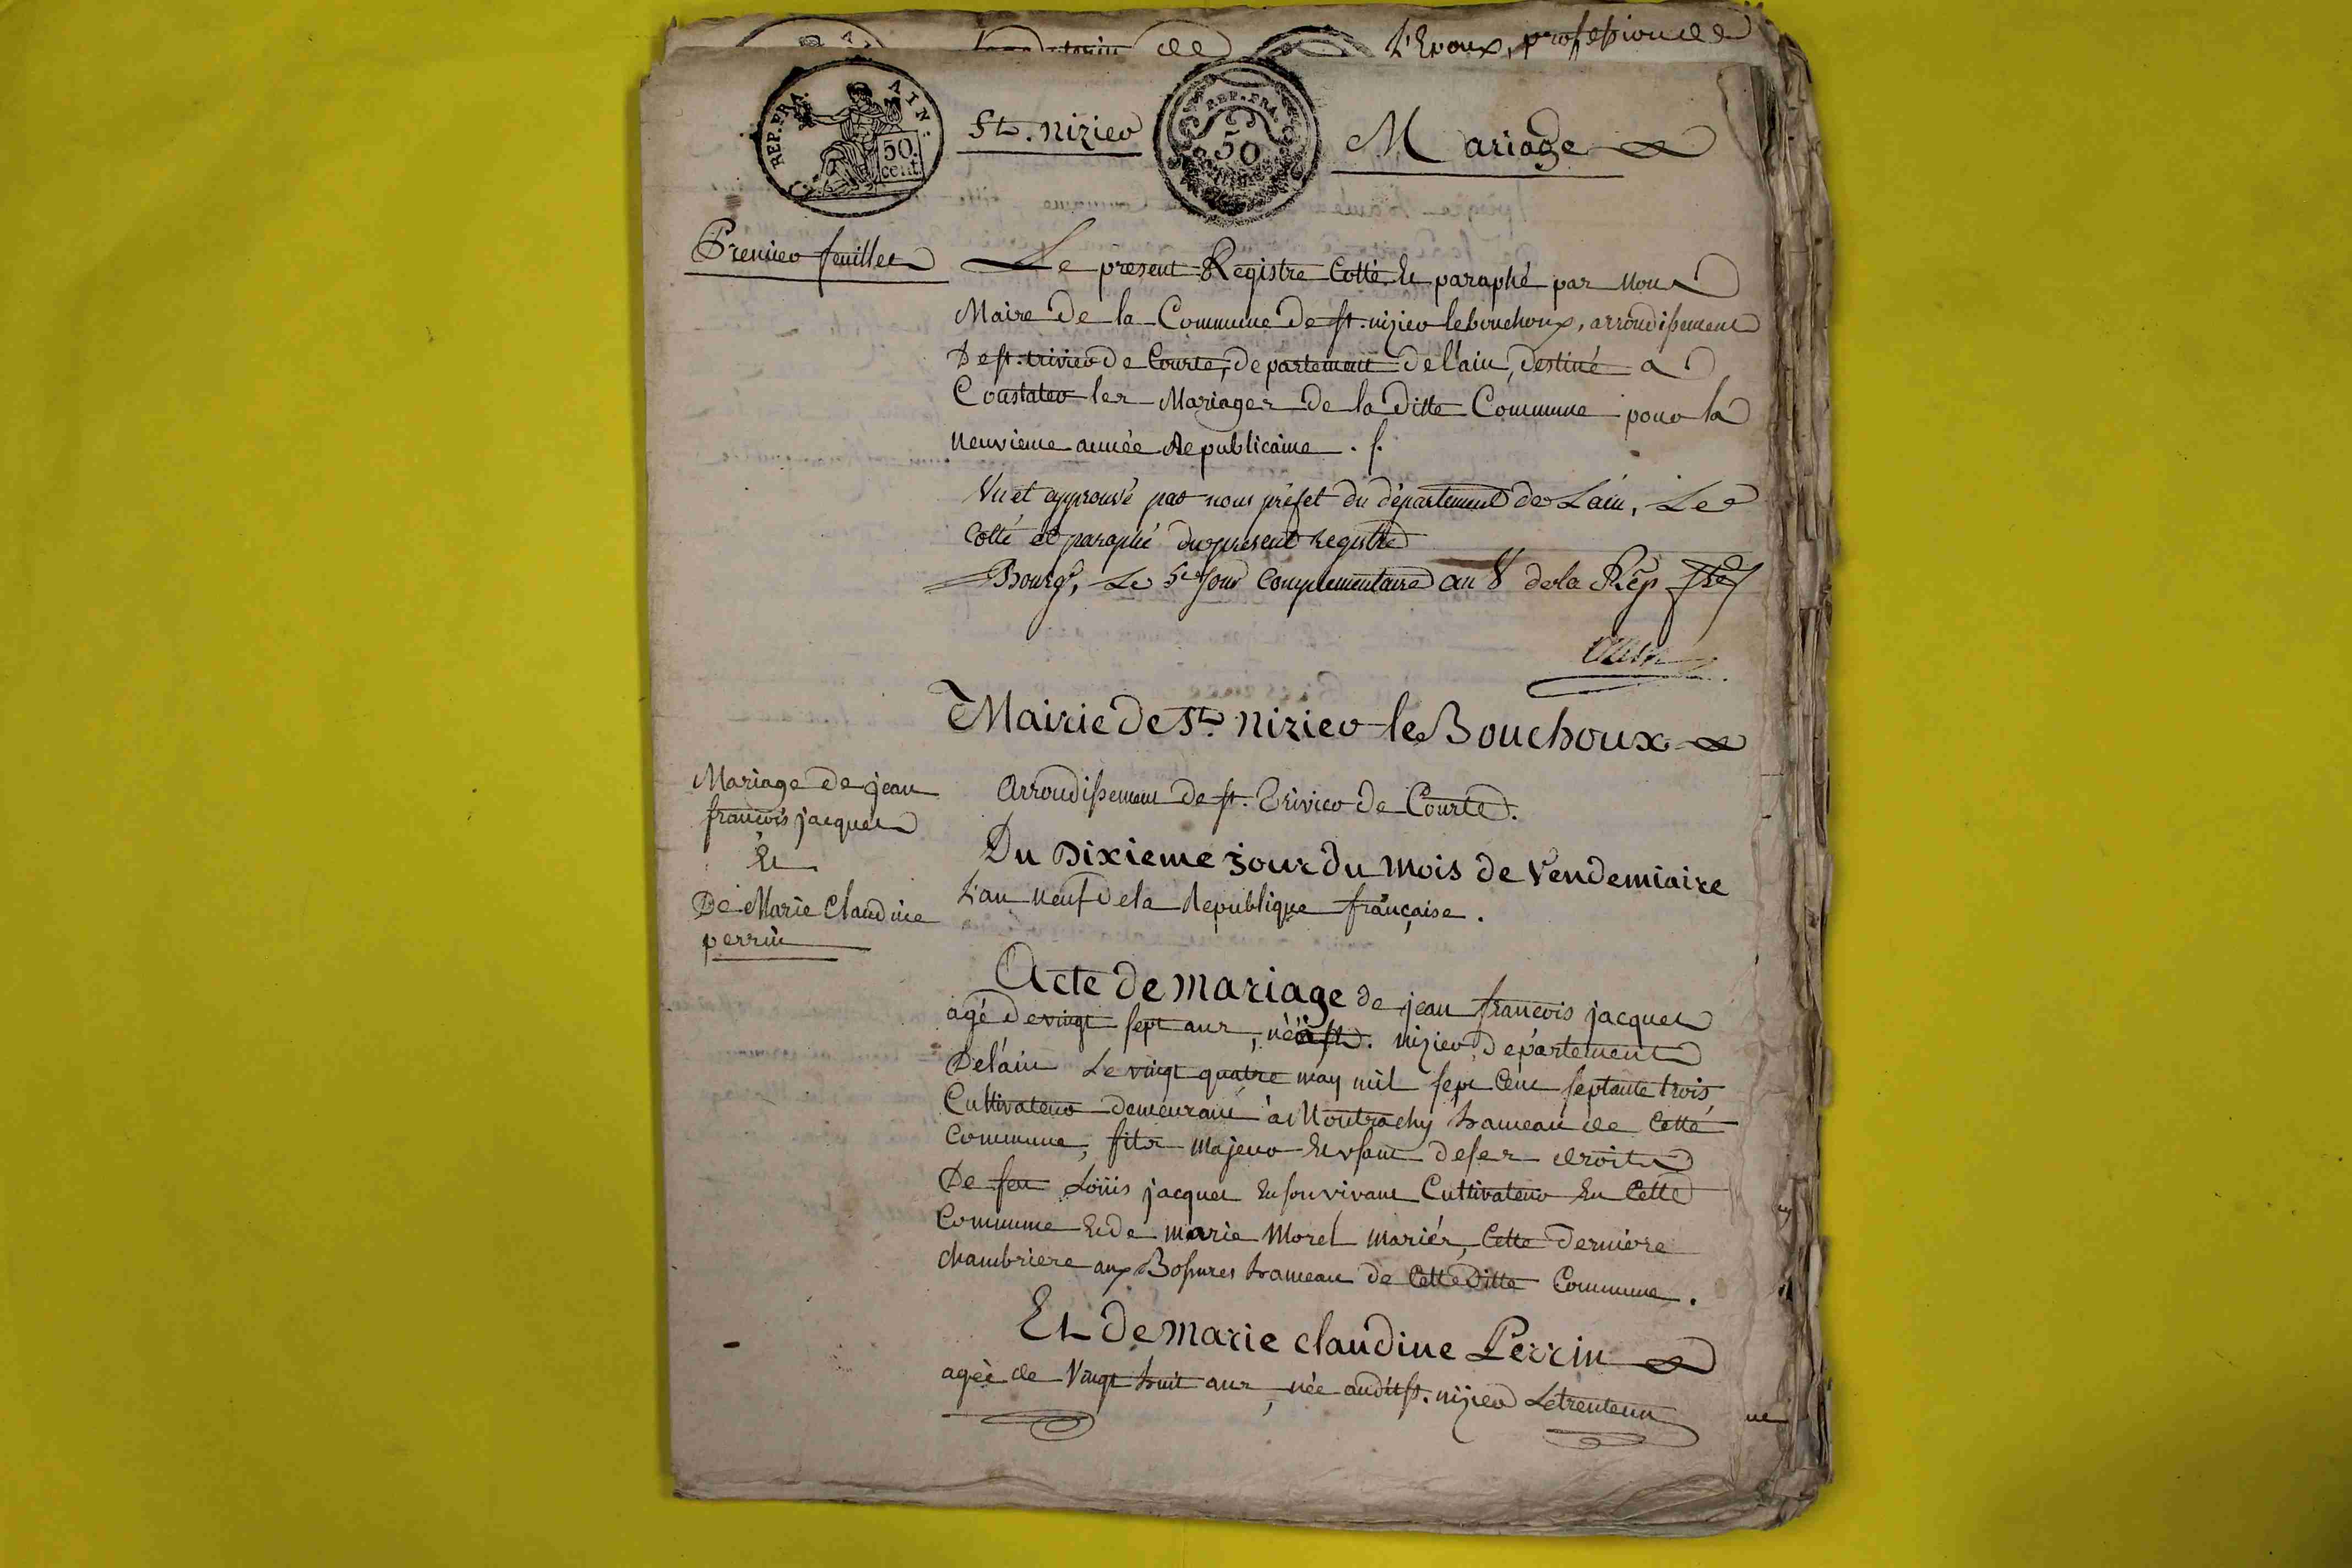 L'Epoux, profession de
REP. FRA. AIN.
50 cent.
St. nizier
REP. FRA.
50
Mariage
Premier feuillet
Le present Registre Cotté et paraphé par Nous
Maire de la Commune de st. nizier lebouchoux, arrondissement
De st. trivier de Courte, departement de l'ain, destiné a
Constater les Mariages de la ditte Commune pour la
neuvieme année Republicaine . /.
Vu et approuvé par nous préfet du département de Lain, Le
cotté et paraphé du présent registre
Bourg, Le 5e Jour Complementaire an 8 de la Rép fse
Mairie de St. nizier le Bouchoux
Arrondissement de st. Trivier de Courte.
Mariage de jean
françois jacquet
Et
De Marie Claudine
perrin
Du Dixieme jour du mois de Vendemiaire
L'an neuf de la Republique française .
Acte de mariage de jean francois jacquet
agé de vingt sept ans, né à st. nizier, département
Del'ain Le vingt quatre may mil sept Cent septante trois,
Cultivateur demeurant à Montrachy hameau de Cette
Commune, fils majeur Et usant de ses droits
De feu Loüis jacquet En son vivant Cultivateur En Cette
Commune Et de marie Morel mariés, Cette derniere
chambriere aux Bossures hameau de Cette ditte Commune .
Et de marie claudine Perrin
agée de Vingt huit ans, née audit st. nizier Le trente un